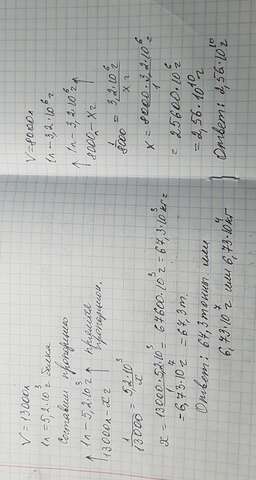 V=13000л
1л-5,2·10³г белка
Составим пропорцию
↑ 1л-5,2·10³г ↑ прямая
13000л-xг пропорция.
1/13000 = 5,2·10³/x
x = 13000·5,2·10³/1 = 67600·10³г = 67,3·10³кг
=6,73·10⁷г = 67,3т.
Ответ: 67,3 тонны или
6,73·10⁷г или 6,73·10⁴кг
V=8000л
1л-3,2·10⁶г
↑ 1л-3,2·10⁶г ↑
8000л-xг
1/8000 = 3,2·10⁶г/xг
x = 8000·3,2·10⁶г/1
= 25600·10⁶г
= 2,56·10¹⁰г
Ответ: 2,56·10¹⁰г